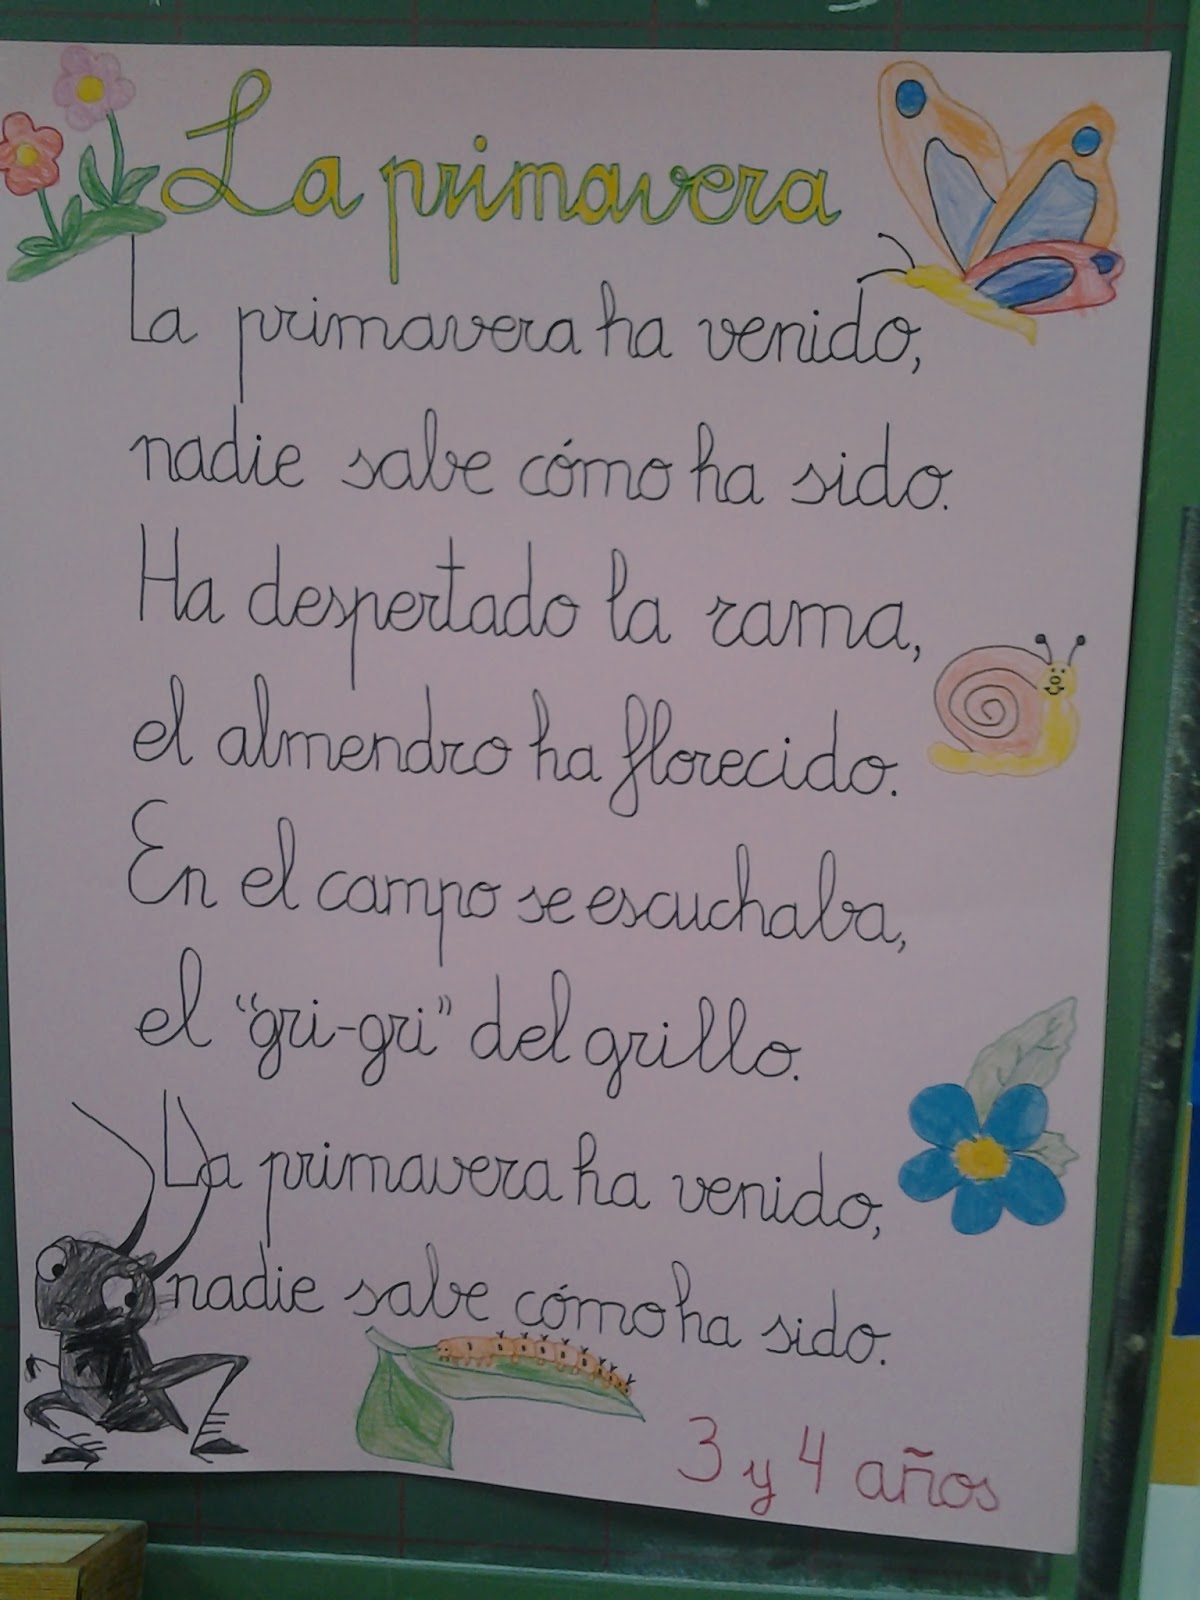 La primavera
La primavera ha venido,
nadie sabe cómo ha sido.
Ha despertado la rama,
el almendro ha florecido.
En el campo se escuchaba,
el "gri-gri" del grillo.
La primavera ha venido,
nadie sabe cómo ha sido.
3 y 4 años